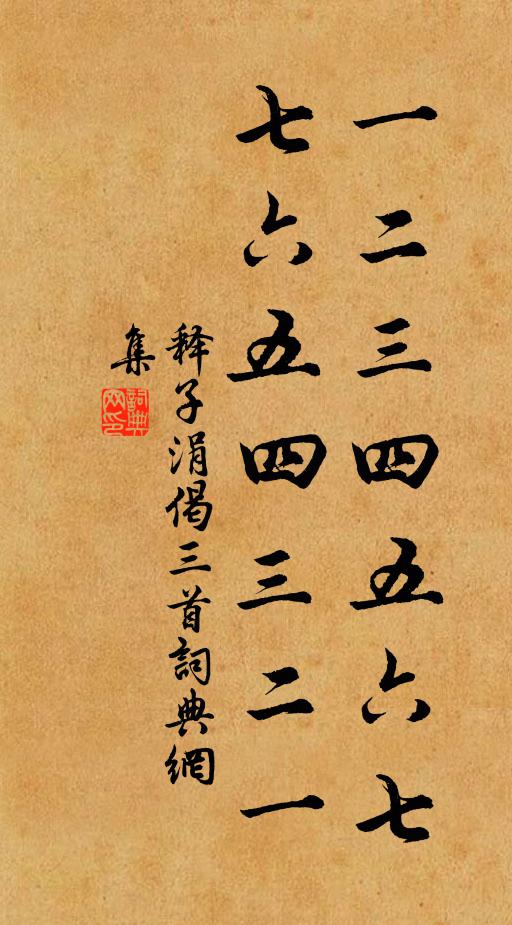 一二三四五六七
七六五四三二一
释子涓偈三首詞典網
集
詞典
网印